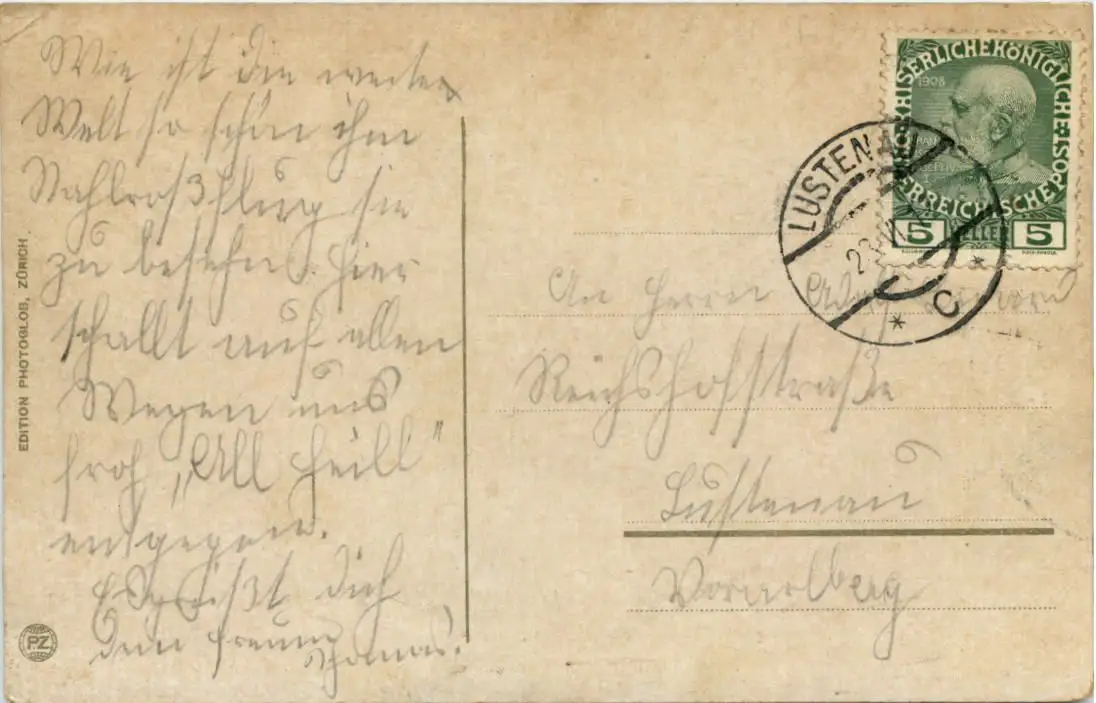 Wie ist die weite
Welt so schön ihm
Stahlroßflug sie
zu besehn. Hier
schallt auf allen
Wegen uns
froh „All Heill"
entgegen.
Es grüßt dich
dein Freund
Thomas.
EDITION PHOTOGLOB, ZÜRICH.
PZ
KAISERLICHEKÖNIGLICHE
ÖSTERREICHISCHE POST
1908
5 HELLER 5
LUSTENAU
C
An Herrn
Reichshofstraße
Lustenau
Vorarlberg